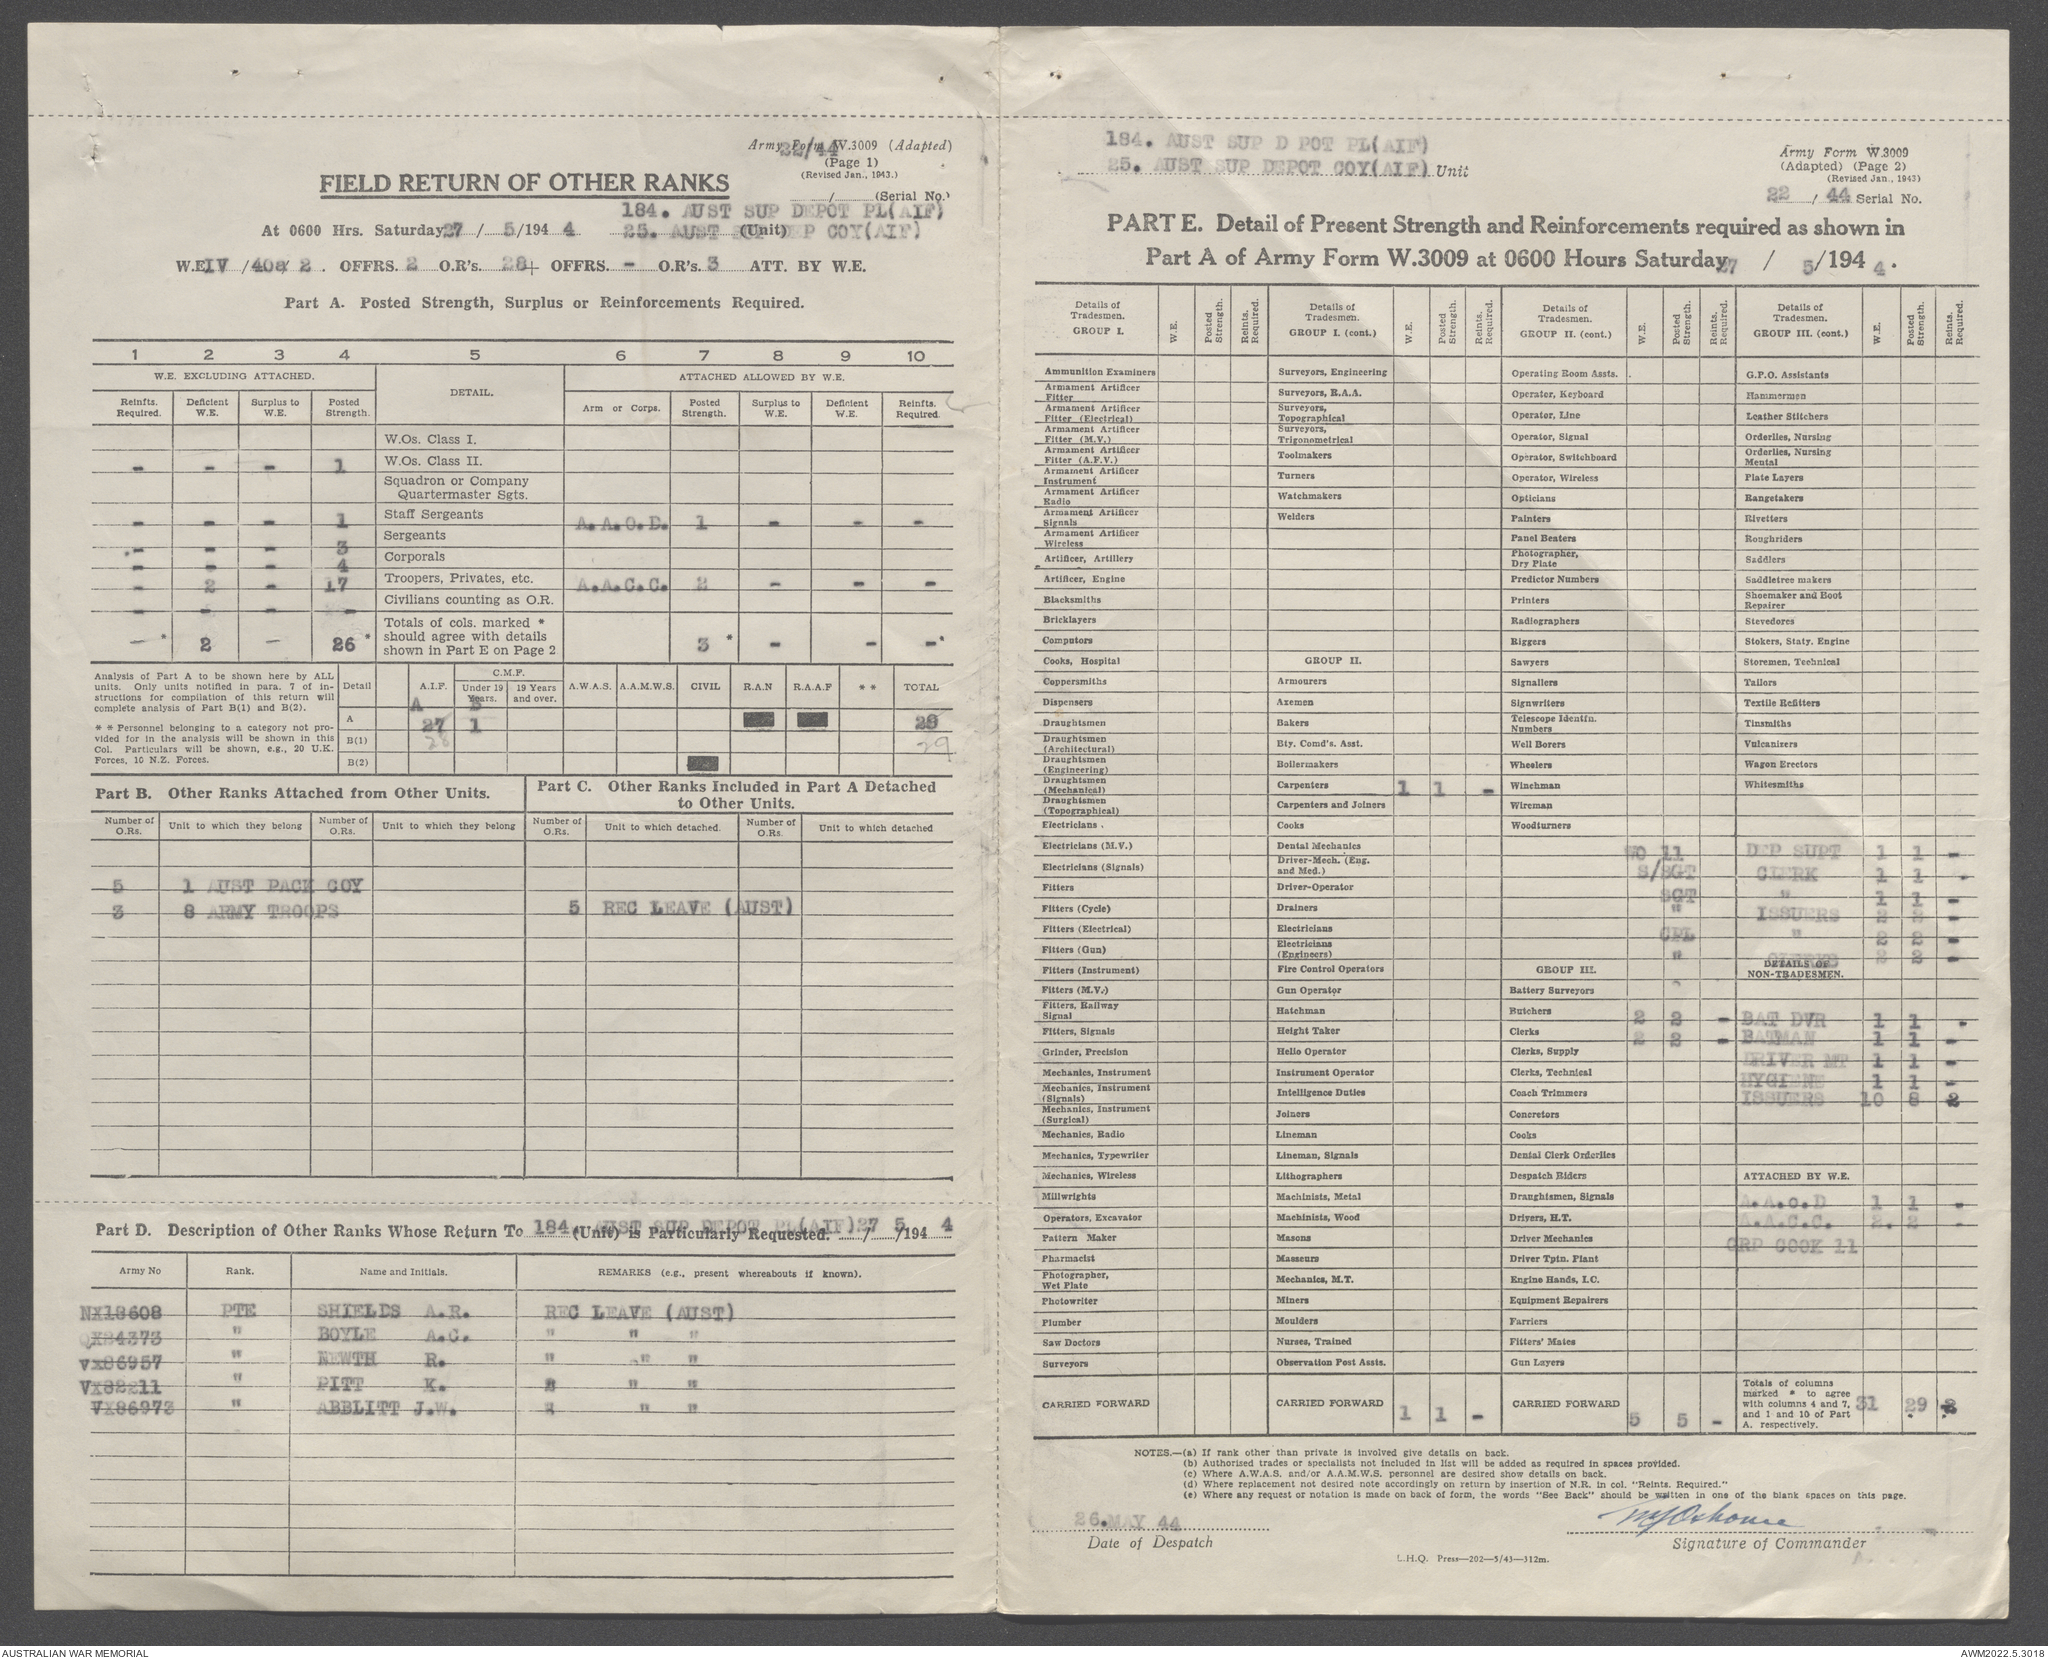 Army Form W.3009 (Adapted)
22/44
(Page 1)
(Revised Jan., 1943.)
FIELD RETURN OF OTHER RANKS
/ (Serial No.)
184. AUST SUP DEPOT PL(AIF)
At 0600 Hrs. Saturday 27 / 5/194 4 25. AUST SUP DEP COY(AIF) (Unit)
W.E. IV /40a/ 2 . OFFRS. 2 O.R's. 28+ OFFRS. - O.R's. 3 ATT. BY W.E.
Part A. Posted Strength, Surplus or Reinforcements Required.
1 2 3 4 5 6 7 8 9 10
W.E. EXCLUDING ATTACHED. DETAIL. ATTACHED ALLOWED BY W.E.
Reinfts. Required. Deficient W.E. Surplus to W.E. Posted Strength. Arm or Corps. Posted Strength. Surplus to W.E. Deficient W.E. Reinfts. Required.
W.Os. Class I.
- - - 1 W.Os. Class II.
Squadron or Company
Quartermaster Sgts.
- - - 1 Staff Sergeants A.A.O.D. 1 - - -
- - - 3 Sergeants
- - - 4 Corporals
- 2 - 17 Troopers, Privates, etc. A.A.C.C. 2 - - -
- - - - Civilians counting as O.R.
Totals of cols. marked *
should agree with details
shown in Part E on Page 2
- * 2 - 26 * 3 * - - - *
Analysis of Part A to be shown here by ALL
units. Only units notified in para. 7 of in-
structions for compilation of this return will
complete analysis of Part B(1) and B(2).
* * Personnel belonging to a category not pro-
vided for in the analysis will be shown in this
Col. Particulars will be shown, e.g., 20 U.K.
Forces, 10 N.Z. Forces.
Detail A.I.F. C.M.F. Under 19 Years. 19 Years and over. A.W.A.S. A.A.M.W.S. CIVIL R.A.N R.A.A.F * * TOTAL
A B
A 27 1 29
B(1) 28 29
B(2)
Part B. Other Ranks Attached from Other Units.
Part C. Other Ranks Included in Part A Detached
to Other Units.
Number of O.Rs. Unit to which they belong Number of O.Rs. Unit to which they belong Number of O.Rs. Unit to which detached. Number of O.Rs. Unit to which detached
5 1 AUST PACK COY
3 8 ARMY TROOPS 5 REC LEAVE (AUST)
Part D. Description of Other Ranks Whose Return To 184. AUST SUP DEPOT PL(AIF) (Unit) is Particularly Requested. 27/ 5 /194 4
Army No Rank. Name and Initials. REMARKS (e.g., present whereabouts if known).
NX18608 PTE SHIELDS A.R. REC LEAVE (AUST)
QX34373 " BOYLE A.C. " " "
VX86957 " NEWTH R. " " "
VX82211 " PITT K. " " "
VX86973 " ABBLITT J.W. " " "
184. AUST SUP D POT PL(AIF)
25. AUST SUP DEPOT COY(AIF) Unit
Army Form W.3009
(Adapted) (Page 2)
(Revised Jan., 1943)
22 / 44 Serial No.
PART E. Detail of Present Strength and Reinforcements required as shown in
Part A of Army Form W.3009 at 0600 Hours Saturday 27 / 5/194 4 .
Details of Tradesmen. GROUP I. W.E. Posted Strength. Reints. Required.
Ammunition Examiners
Armament Artificer Fitter
Armament Artificer Fitter (Electrical)
Armament Artificer Fitter (M.V.)
Armament Artificer Fitter (A.F.V.)
Armament Artificer Instrument
Armament Artificer Radio
Armament Artificer Signals
Armament Artificer Wireless
Artificer, Artillery
Artificer, Engine
Blacksmiths
Bricklayers
Computors
Cooks, Hospital
Coppersmiths
Dispensers
Draughtsmen
Draughtsmen (Architectural)
Draughtsmen (Engineering)
Draughtsmen (Mechanical)
Draughtsmen (Topographical)
Electricians .
Electricians (M.V.)
Electricians (Signals)
Fitters
Fitters (Cycle)
Fitters (Electrical)
Fitters (Gun)
Fitters (Instrument)
Fitters (M.V.)
Fitters, Railway Signal
Fitters, Signals
Grinder, Precision
Mechanics, Instrument
Mechanics, Instrument (Signals)
Mechanics, Instrument (Surgical)
Mechanics, Radio
Mechanics, Typewriter
Mechanics, Wireless
Millwrights
Operators, Excavator
Pattern Maker
Pharmacist
Photographer, Wet Plate
Photowriter
Plumber
Saw Doctors
Surveyors
CARRIED FORWARD
Details of Tradesmen. GROUP I. (cont.) W.E. Posted Strength. Reints. Required.
Surveyors, Engineering
Surveyors, R.A.A.
Surveyors, Topographical
Surveyors, Trigonometrical
Toolmakers
Turners
Watchmakers
Welders
GROUP II.
Armourers
Axemen
Bakers
Bty. Comd's. Asst.
Boilermakers
Carpenters 1 1 -
Carpenters and Joiners
Cooks
Dental Mechanics
Driver-Mech. (Eng. and Med.)
Driver-Operator
Drainers
Electricians
Electricians (Engineers)
Fire Control Operators
Gun Operator
Hatchman
Height Taker
Helio Operator
Instrument Operator
Intelligence Duties
Joiners
Lineman
Lineman, Signals
Lithographers
Machinists, Metal
Machinists, Wood
Masons
Masseurs
Mechanics, M.T.
Miners
Moulders
Nurses, Trained
Observation Post Assts.
CARRIED FORWARD 1 1 -
Details of Tradesmen. GROUP II. (cont.) W.E. Posted Strength. Reints. Required.
Operating Room Assts.
Operator, Keyboard
Operator, Line
Operator, Signal
Operator, Switchboard
Operator, Wireless
Opticians
Painters
Panel Beaters
Photographer, Dry Plate
Predictor Numbers
Printers
Radiographers
Riggers
Sawyers
Signallers
Signwriters
Telescope Identfn. Numbers
Well Borers
Wheelers
Winchman
Wireman
Woodturners
GROUP III.
Battery Surveyors
Butchers 2 2 -
Clerks 2 2 -
Clerks, Supply
Clerks, Technical
Coach Trimmers
Concretors
Cooks
Dental Clerk Orderlies
Despatch Riders
Draughtsmen, Signals
Drivers, H.T.
Driver Mechanics
Driver Tptn. Plant
Engine Hands, I.C.
Equipment Repairers
Farriers
Fitters' Mates
Gun Layers
CARRIED FORWARD 5 5 -
Details of Tradesmen. GROUP III. (cont.) W.E. Posted Strength. Reints. Required.
G.P.O. Assistants
Hammermen
Leather Stitchers
Orderlies, Nursing
Orderlies, Nursing Mental
Plate Layers
Rangetakers
Rivetters
Roughriders
Saddlers
Saddletree makers
Shoemaker and Boot Repairer
Stevedores
Stokers, Staty. Engine
Storemen, Technical
Tailors
Textile Refitters
Tinsmiths
Vulcanizers
Wagon Erectors
Whitesmiths
WO 11 DEP SUPT 1 1 -
S/SGT CLERK 1 1 -
SGT " 1 1 -
" ISSUERS 2 2 -
CPL " 2 2 -
" CLERKS 2 2 -
DETAILS OF NON-TRADESMEN.
BAT DVR 1 1 -
BATMAN 1 1 -
DRIVER MT 1 1 -
HYGIENE 1 1 -
ISSUERS 10 8 2
ATTACHED BY W.E.
A.A.O.D 1 1 -
A.A.C.C. 2. 2 -
GRP COOK 11
Totals of columns
marked * to agree
with columns 4 and 7,
and 1 and 10 of Part
A. respectively.
31 29 2
NOTES.—(a) If rank other than private is involved give details on back.
(b) Authorised trades or specialists not included in list will be added as required in spaces provided.
(c) Where A.W.A.S. and/or A.A.M.W.S. personnel are desired show details on back.
(d) Where replacement not desired note accordingly on return by insertion of N.R. in col. "Reints. Required."
(e) Where any request or notation is made on back of form, the words "See Back" should be written in one of the blank spaces on this page.
26.MAY 44
Date of Despatch
Signature of Commander
L.H.Q. Press—202—5/43—312m.
AUSTRALIAN WAR MEMORIAL
AWM2022.5.3018